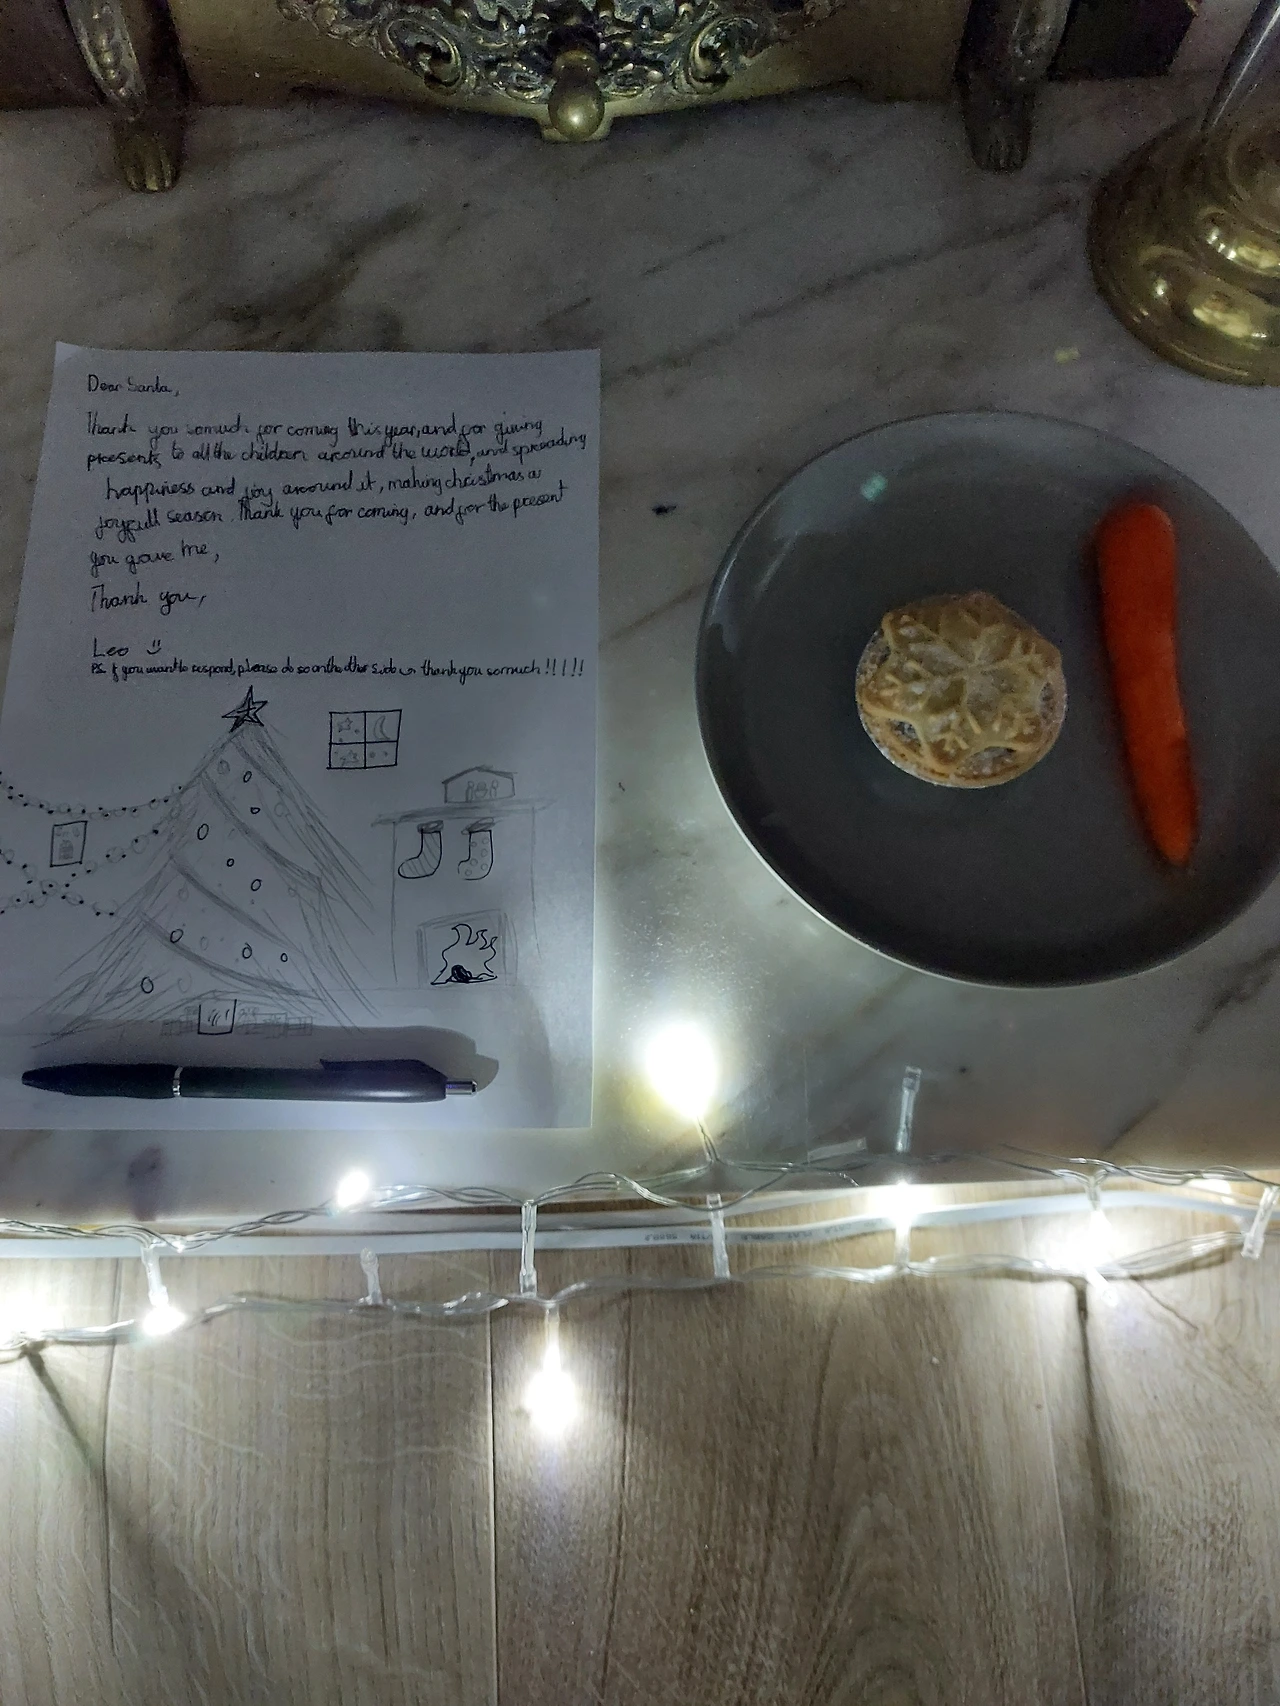 Dear Santa,
Thank you somuch for coming this year, and for giving
presents to all the children around the world, and spreading
happiness and joy around it, making christmas a
joyfull season. Thank you for coming, and for the present
you gave me,
Thank you,
Leo
PS. If you want to respond, please do so on the other side thank you so much !!!!!